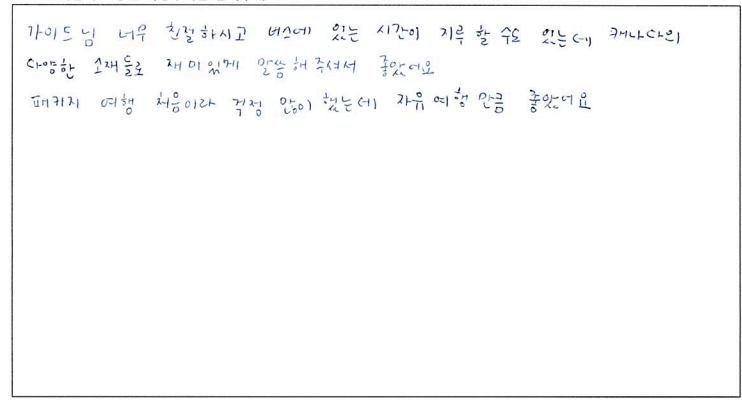 가이드님 너무 친절하시고 버스에 있는 시간이 지루 할 수도 있는데, 캐나다의
다양한 소재들로 재미있게 말씀해주셔서 좋았어요
패키지 여행 처음이라 걱정 많이 했는데 자유여행 만큼 좋았어요